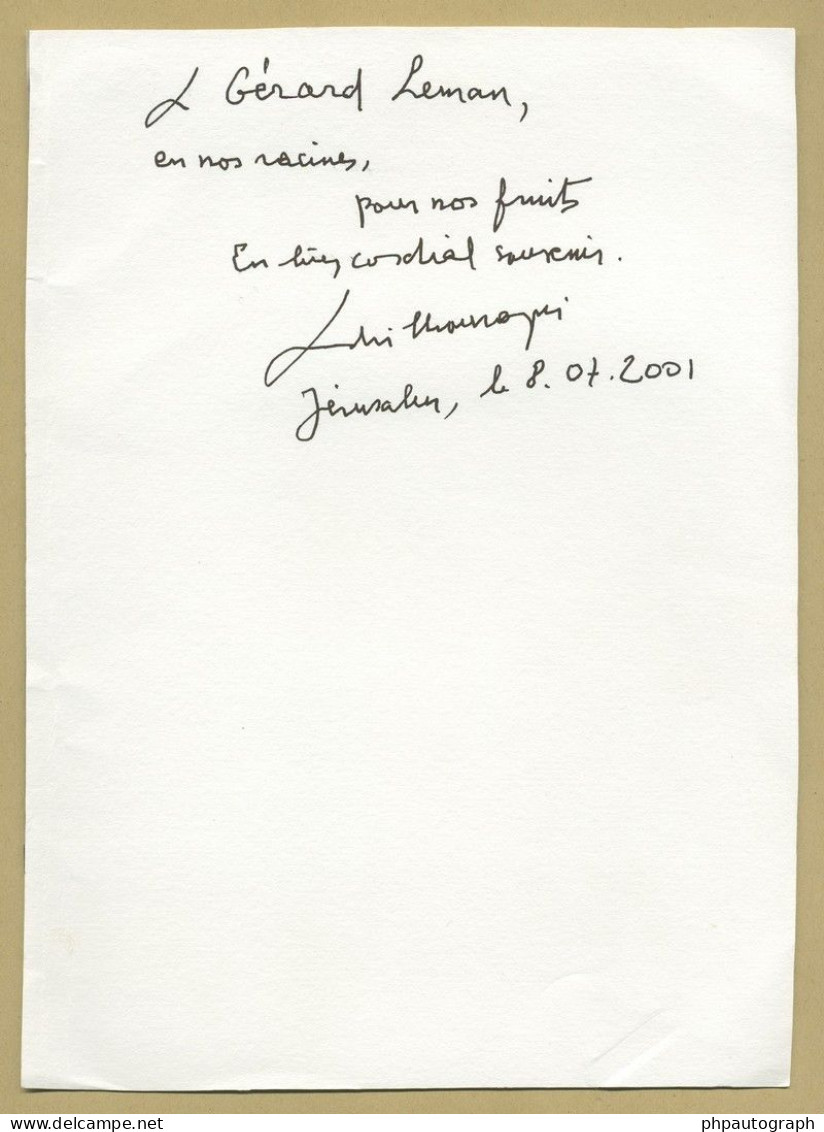 A Gérard Leman,
en nos racines,
pour nos fruits
En très cordial souvenir.
André Chouraqui
Jérusalem, le 8.07.2001
DELCAMPE.NET
phpautograph